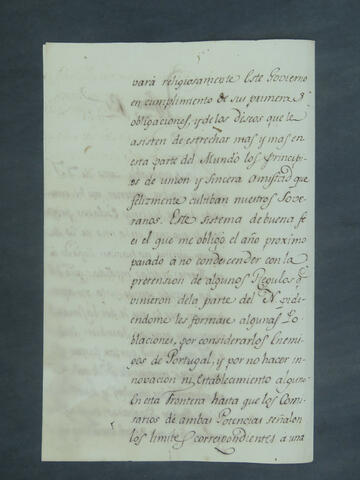 vará religiosamente Este Govierno
en cumplimiento de sus primeras
obligaciones, y de los deseos que le
asisten de estrechar mas y mas en
esta parte del Mundo los Principi-
os de union y Sincera amistad que
felizmente cultiban nuestros Sove-
ranos. Este sistema de buena fe
és el que me obligó el año proximo
pasado á no condecender con la
pretension de algunos Regulos q.
vinieron de la parte del N. pidi-
endome les formase algunas Po-
blaciones, por considerarlos Enemi-
gos de Portugal, y por no hacer in-
novacion ni establecimiento alguno
En esta Frontera hasta que los Comi-
sarios de ambas Potencias señalen
los limites correspondientes a una